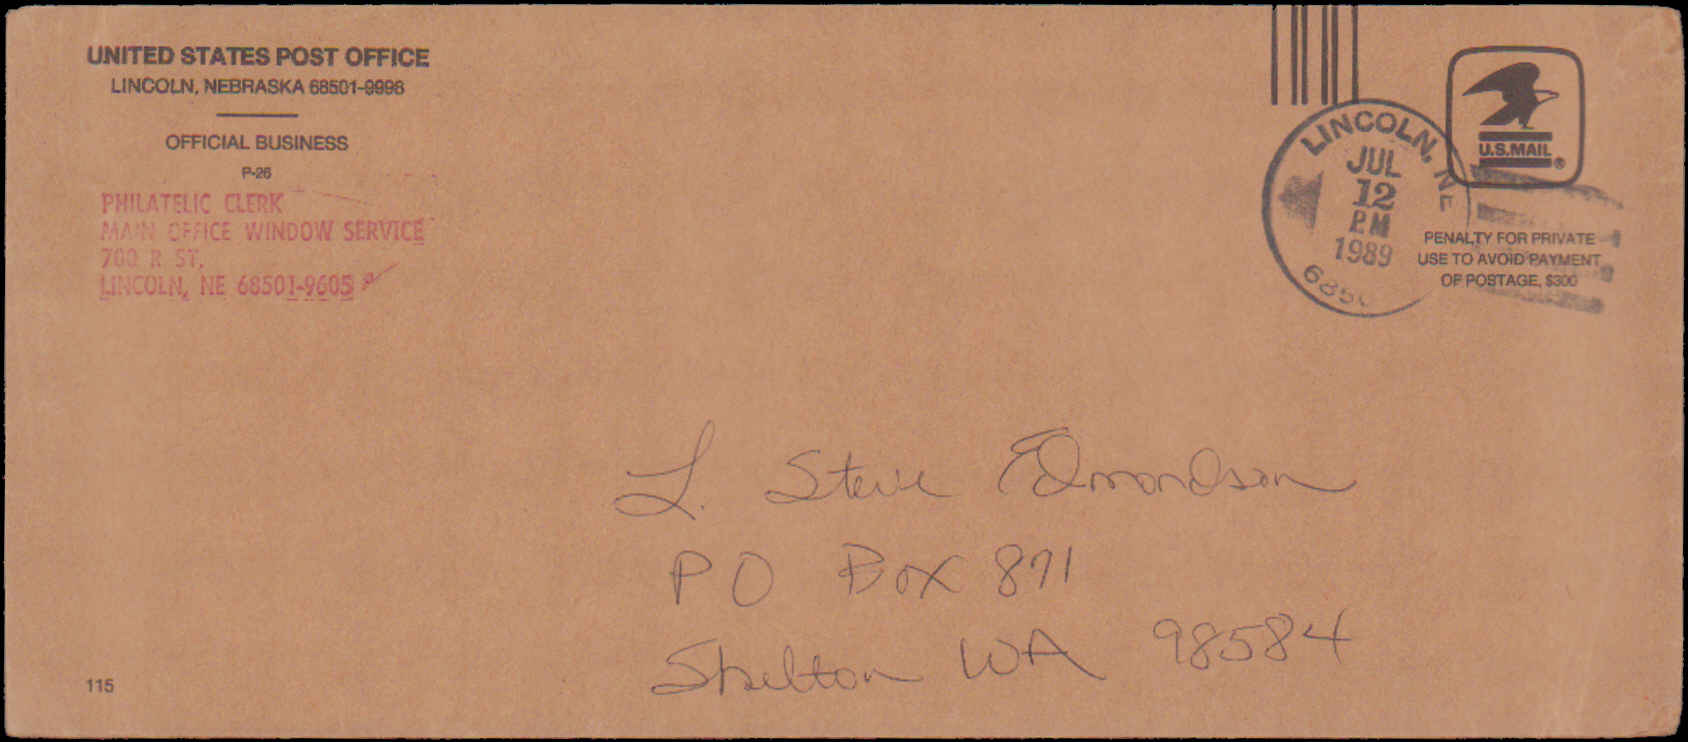 UNITED STATES POST OFFICE
LINCOLN, NEBRASKA 68501-9998
OFFICIAL BUSINESS
P-26
PHILATELIC CLERK
MAIN OFFICE WINDOW SERVICE
700 R ST.
LINCOLN, NE 68501-9605
LINCOLN, NE
JUL
12
PM
1989
U.S.MAIL®
PENALTY FOR PRIVATE
USE TO AVOID PAYMENT
OF POSTAGE, $300
L. Steve Edmondson
PO Box 871
Shelton WA 98584
115